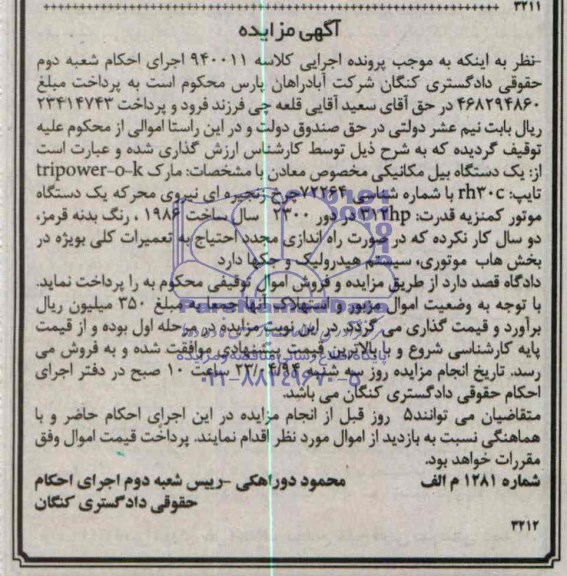 ۳۲۱۱
آگهی مزایده
-نظر به اینکه به موجب پرونده اجرایی کلاسه ۹۴۰۰۱۱ اجرای احکام شعبه دوم
حقوقی دادگستری کنگان شرکت آبادراهان پارس محکوم است به پرداخت مبلغ
۴۶۸۲۹۴۸۶۰ در حق آقای سعید آقایی قلعه چی فرزند فرود و پرداخت ۲۳۴۱۴۷۴۳
ریال بابت نیم عشر دولتی در حق صندوق دولت و در این راستا اموالی از محکوم علیه
توقیف گردیده که به شرح ذیل توسط کارشناس ارزش گذاری شده و عبارت است
از: یک دستگاه بیل مکانیکی مخصوص معادن با مشخصات: مارک tripower-o-k
تایپ: rh۳۰c با شماره شناسی ۷۲۲۶۴ چرخ زنجیره ای نیروی محرکه یک دستگاه
موتور کمنزیه قدرت: ۳۱۲hp در دور ۲۳۰۰ سال ساخت ۱۹۸۶ ، رنگ بدنه قرمز،
دو سال کار نکرده که در صورت راه اندازی مجدد احتیاج به تعمیرات کلی بویژه در
بخش هاب موتوری، سیستم هیدرولیک و جکها دارد
دادگاه قصد دارد از طریق مزایده و فروش اموال توقیفی محکوم به را پرداخت نماید.
با توجه به وضعیت اموال مزبور و استهلاک آنها جمعا به مبلغ ۳۵۰ میلیون ریال
برآورد و قیمت گذاری می گردد. در این نوبت مزایده در مرحله اول بوده و از قیمت
پایه کارشناسی شروع و با بالاترین قیمت پیشنهادی موافقت شده و به فروش می
رسد. تاریخ انجام مزایده روز سه شنبه ۲۳/۰۴/۹۴ ساعت ۱۰ صبح در دفتر اجرای
احکام حقوقی دادگستری کنگان می باشد.
متقاضیان می توانند۵ روز قبل از انجام مزایده در این اجرای احکام حاضر و با
هماهنگی نسبت به بازدید از اموال مورد نظر اقدام نمایند. پرداخت قیمت اموال وفق
مقررات خواهد بود.
شماره ۱۲۸۱ م الف
محمود دوراهکی -رییس شعبه دوم اجرای احکام
حقوقی دادگستری کنگان
۳۲۱۲
ParsNamadData
۰۲۱-۸۸۳۴۹۶۷۰-۵